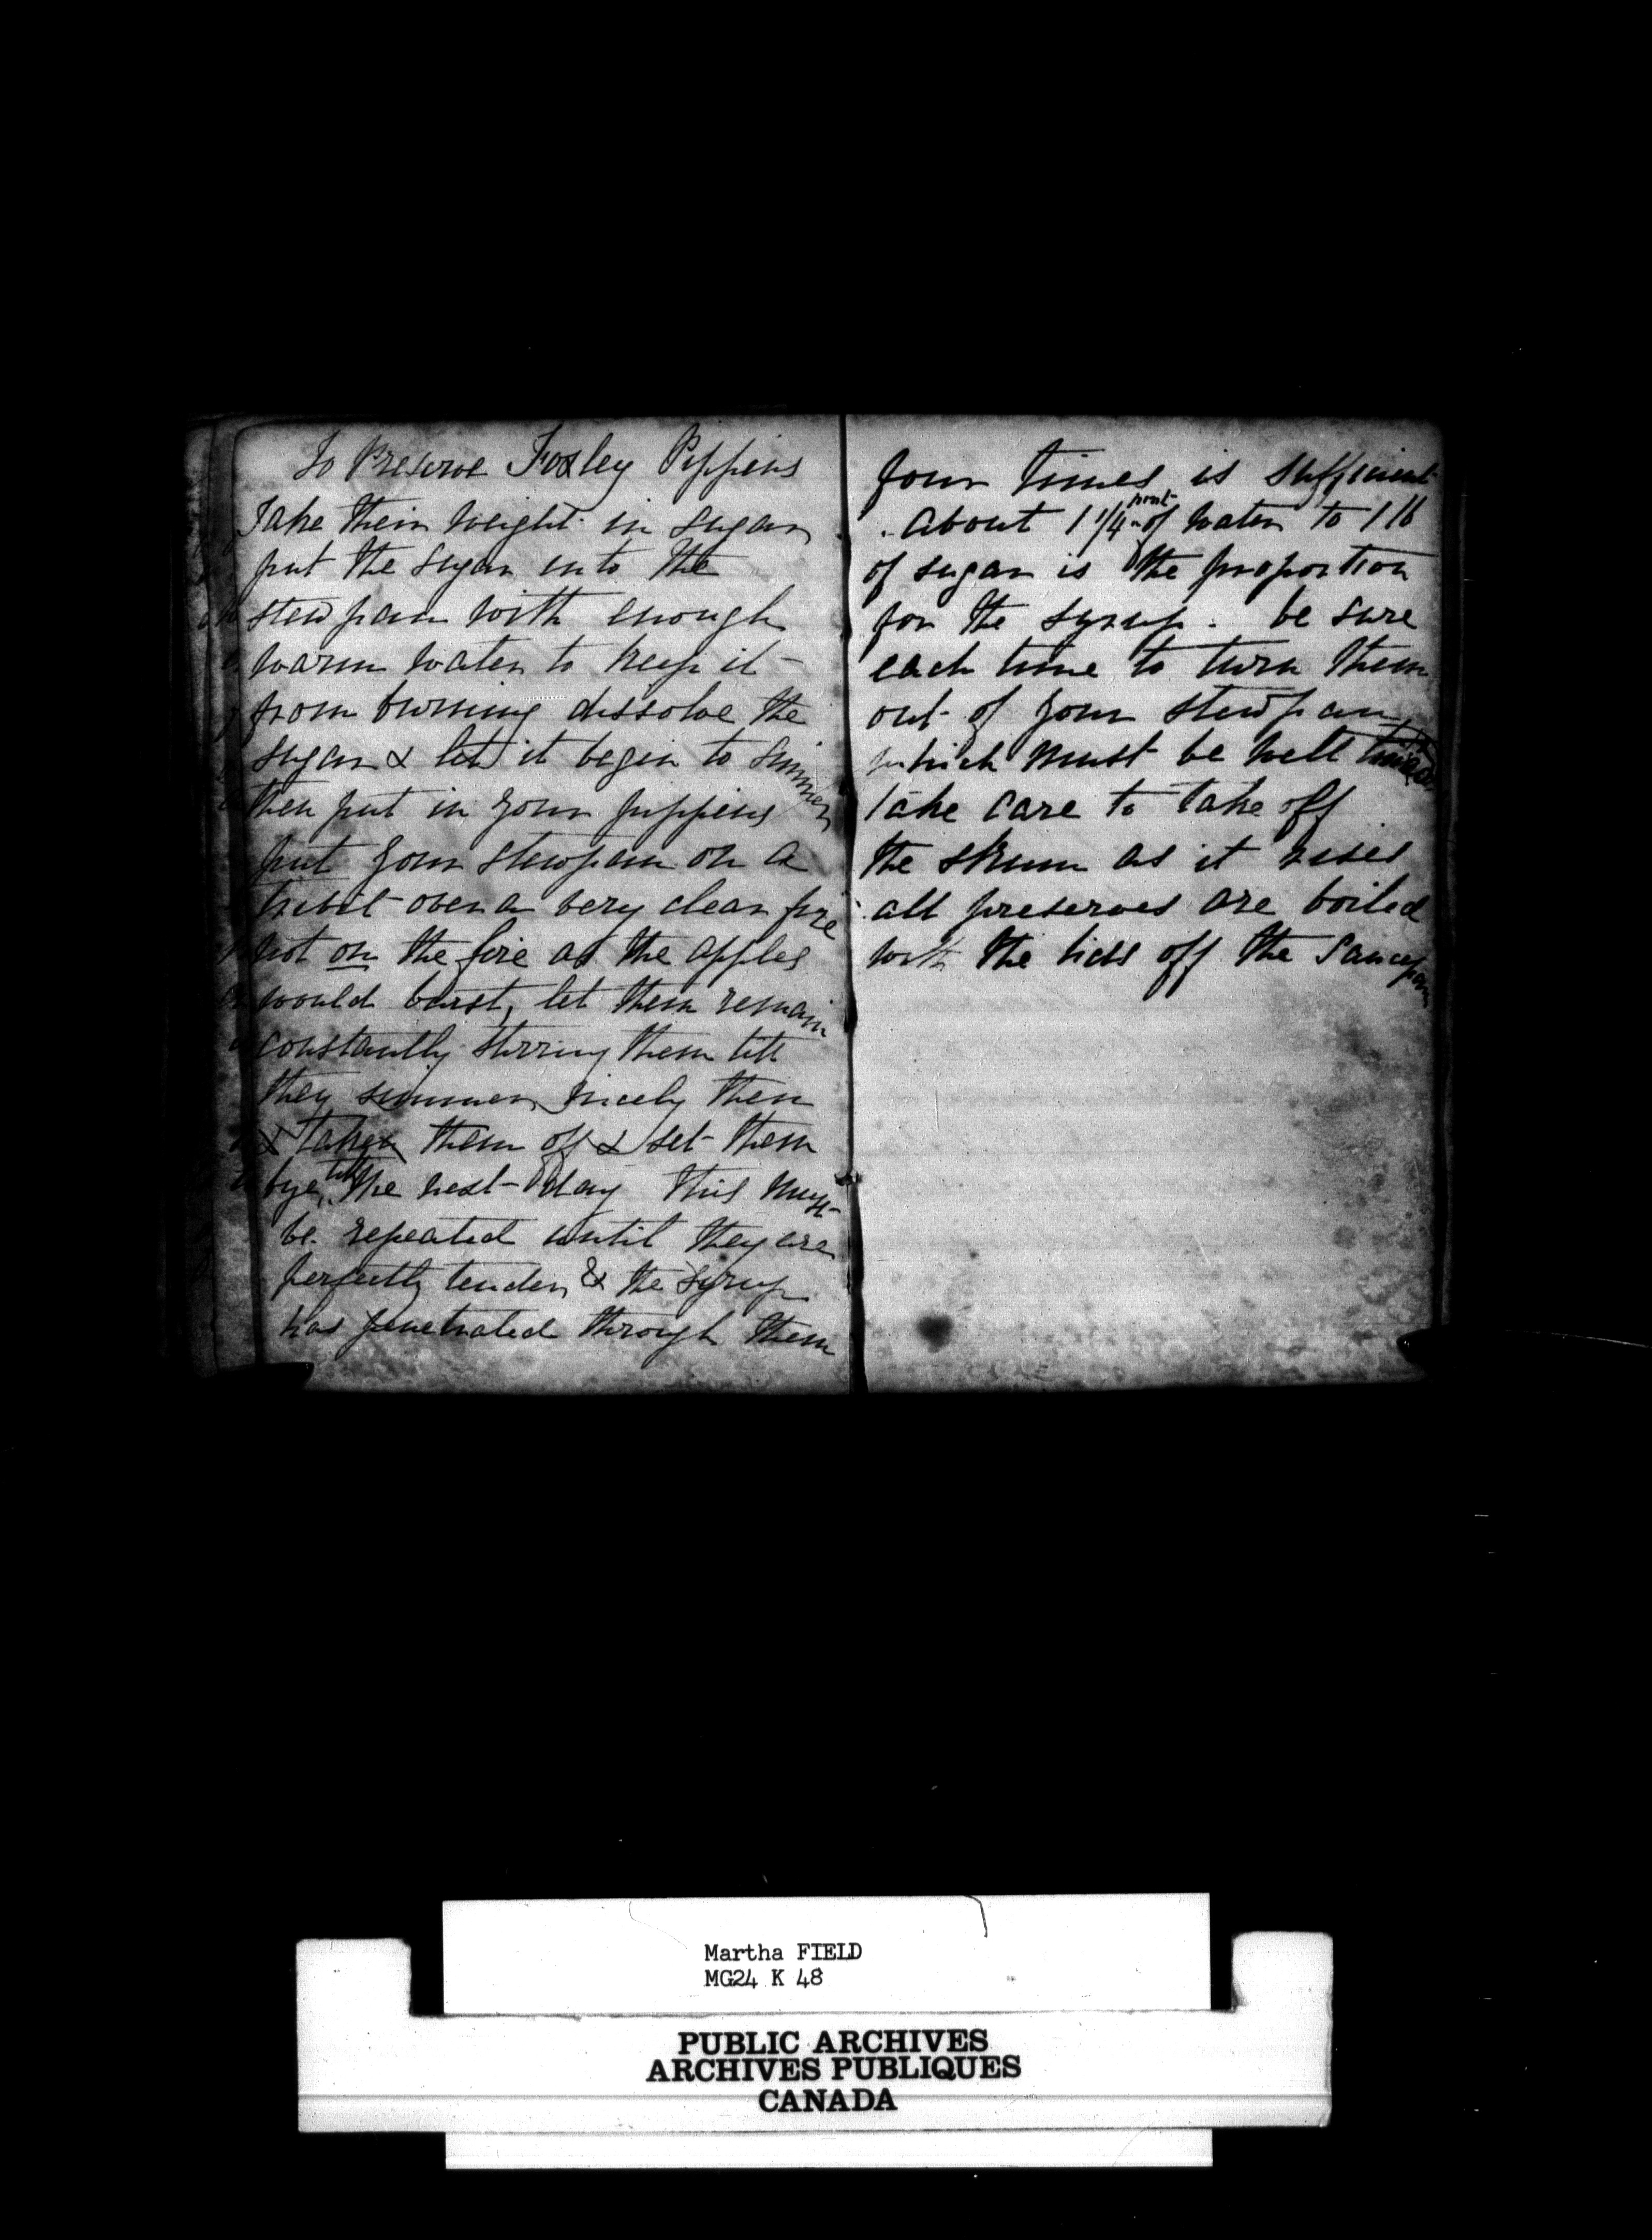 To Preserve Foxley Pippins
Take their weight in sugar
put the sugar into the
stew pan with enough
warm water to keep it
from burning dissolve the
sugar & let it begin to simmer
then put in your pippins
put your stewpan on a
trivit over a very clear fire
not on the fire as the apples
would burst, let them remain
constantly stirring them till
they simmer nicely then
& take them off & set them
bye till the next day this must
be repeated until they are
perfectly tender & the syrup
has penetrated through them
four times is sufficient
. about 1 1/4 pint of water to 1 lb
of sugar is the proportion
for the syrup. be sure
each time to turn them
out of your stewpan
which must be well
take care to take off
the skum as it rises
all preserves are boiled
with the lids off the Saucepan
Martha FIELD
MG24 K 48
PUBLIC ARCHIVES
ARCHIVES PUBLIQUES
CANADA